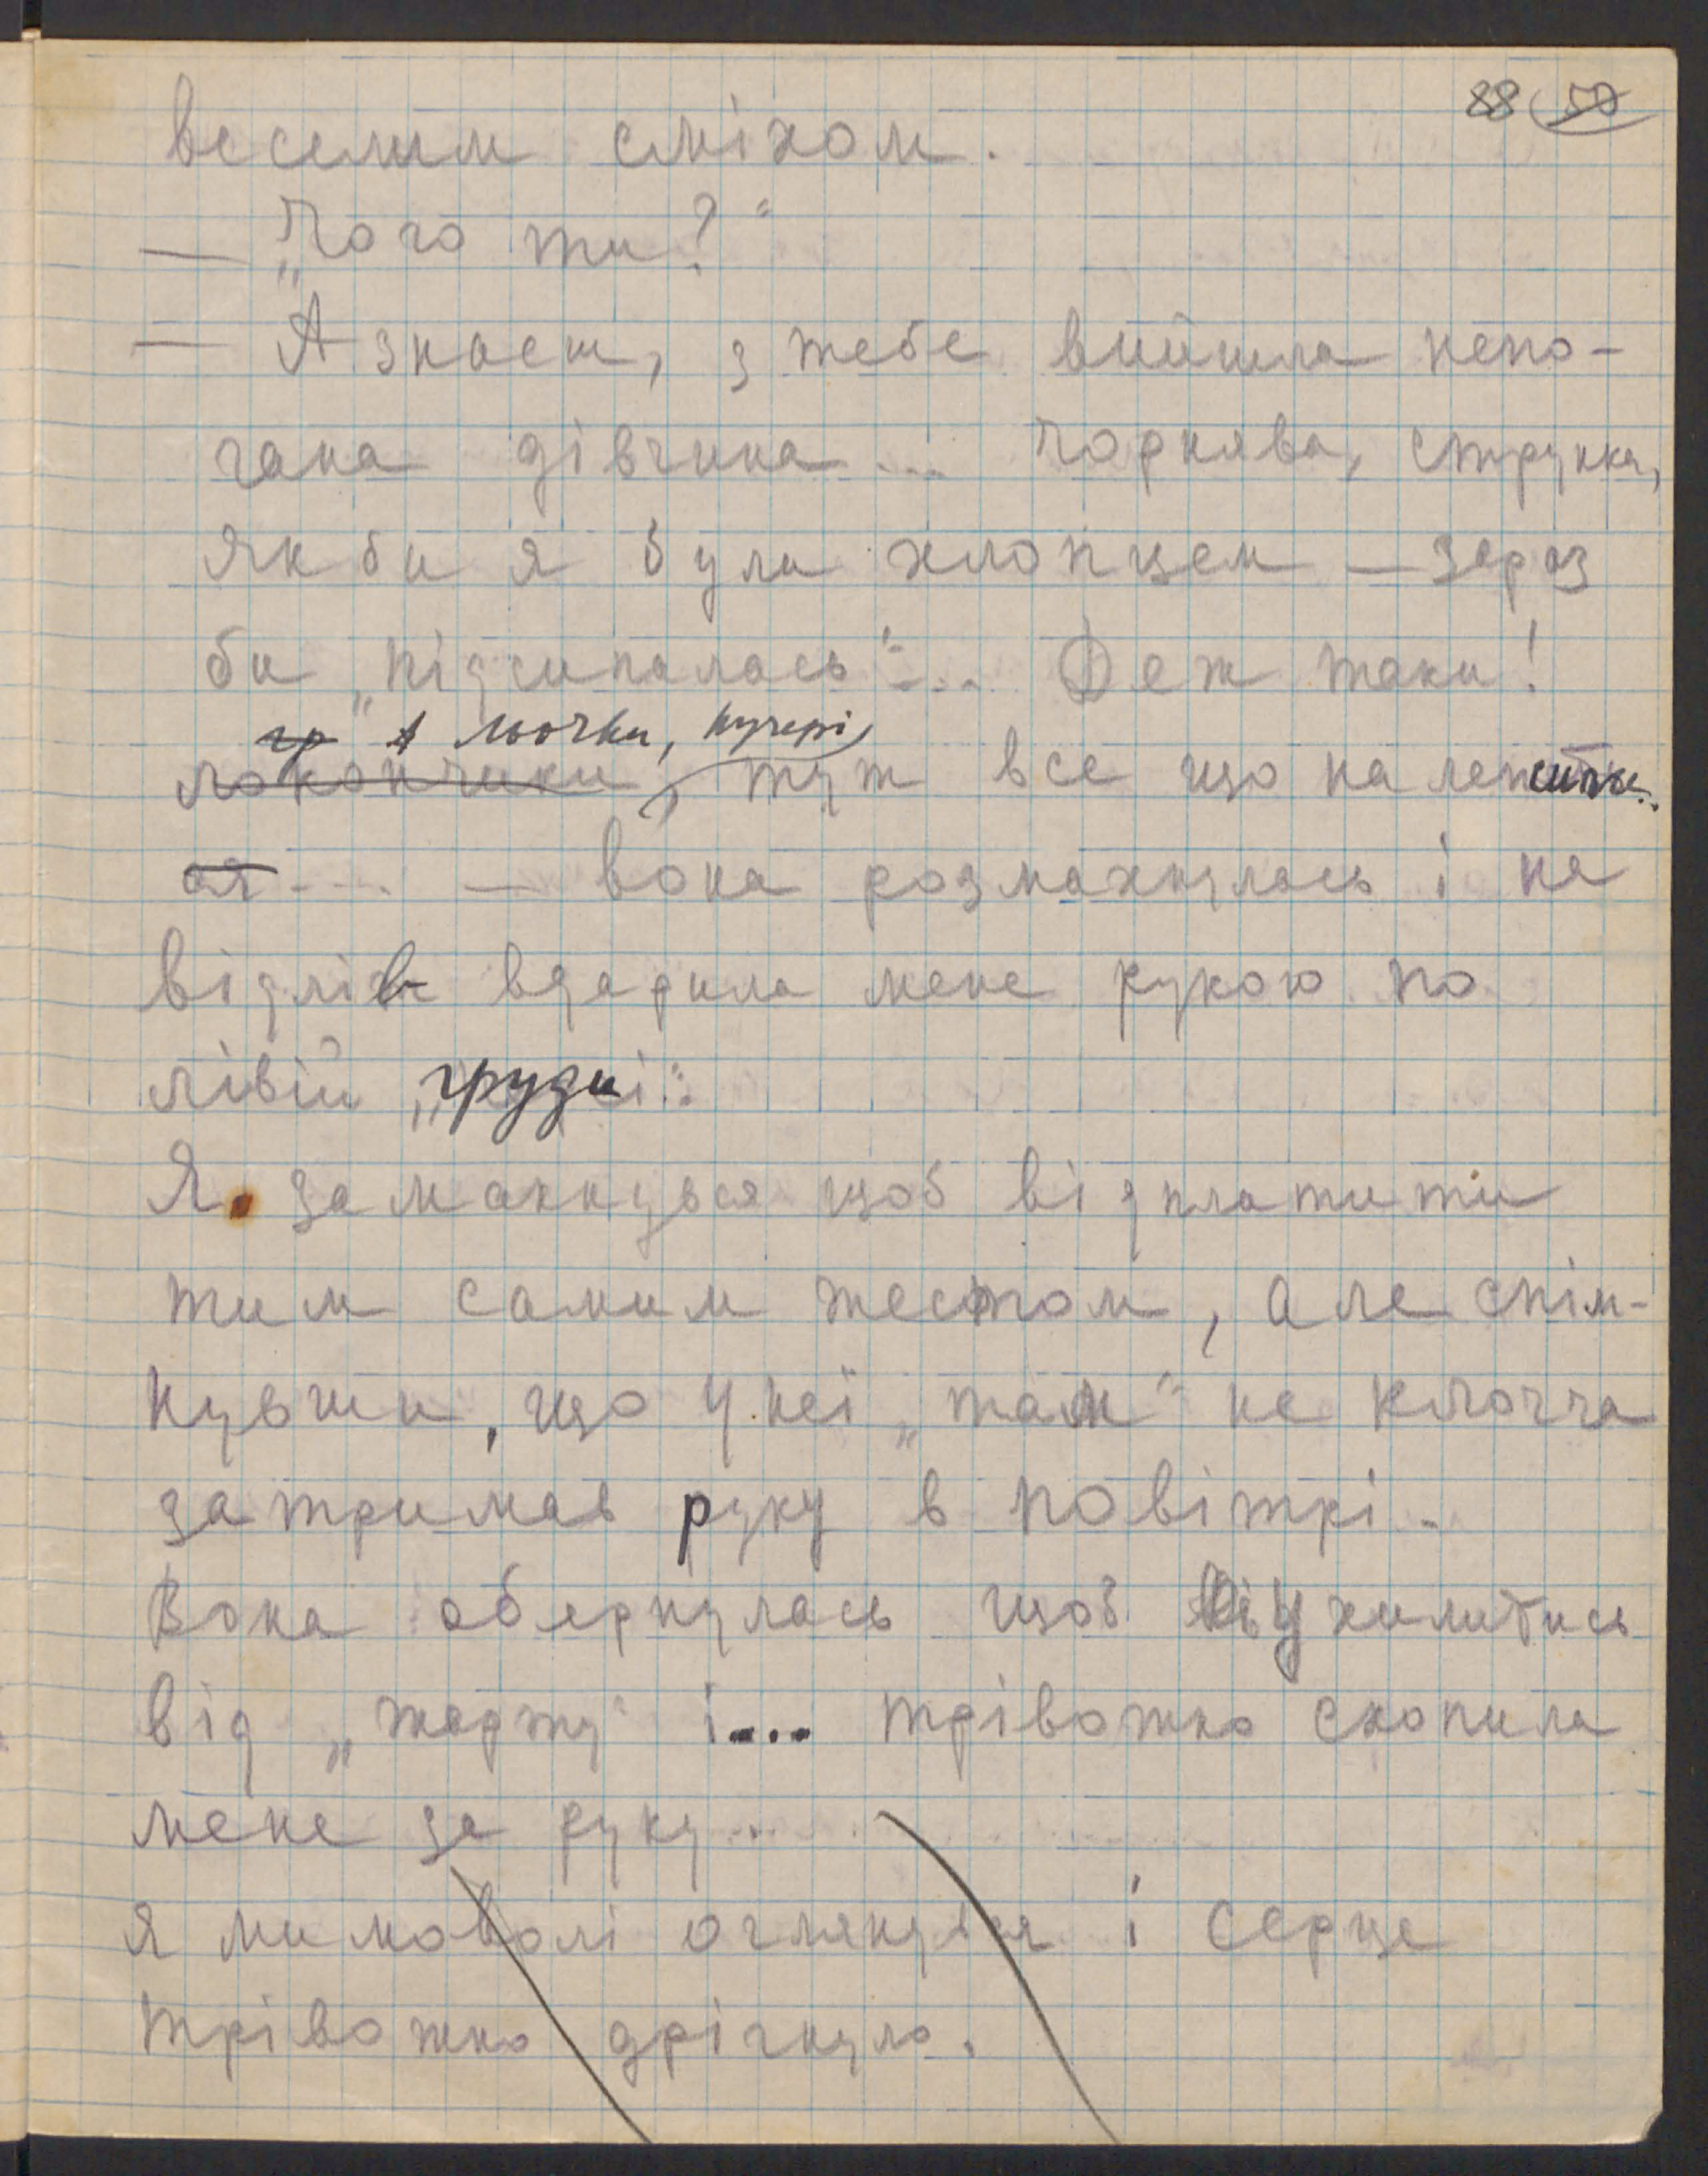 88 50
веселим сміхом.
— „Чого ти?"
— А знаєш, з тебе вийшла непо-
гана дівчина... чорнява, струнка,
Якби я була хлопцем — зараз
би „підсипалась"... Деж таки!
гр А льочки, кучері,
локончики, туж все що належить...
ся ... — вона розмахнулась і на
відлів вдарила мене рукою по
лівій „груди":
Я замахнувся щоб відплатити
тим самим жестом, але спім-
нувши, що у неї „там" не клочча
затримав руку в повітрі.
Вона обернулась щоб ухилитись
від „жарту" і... трівожно схопила
мене за руку...
я мимоволі оглянувся і серце
трівожно дрігнуло.